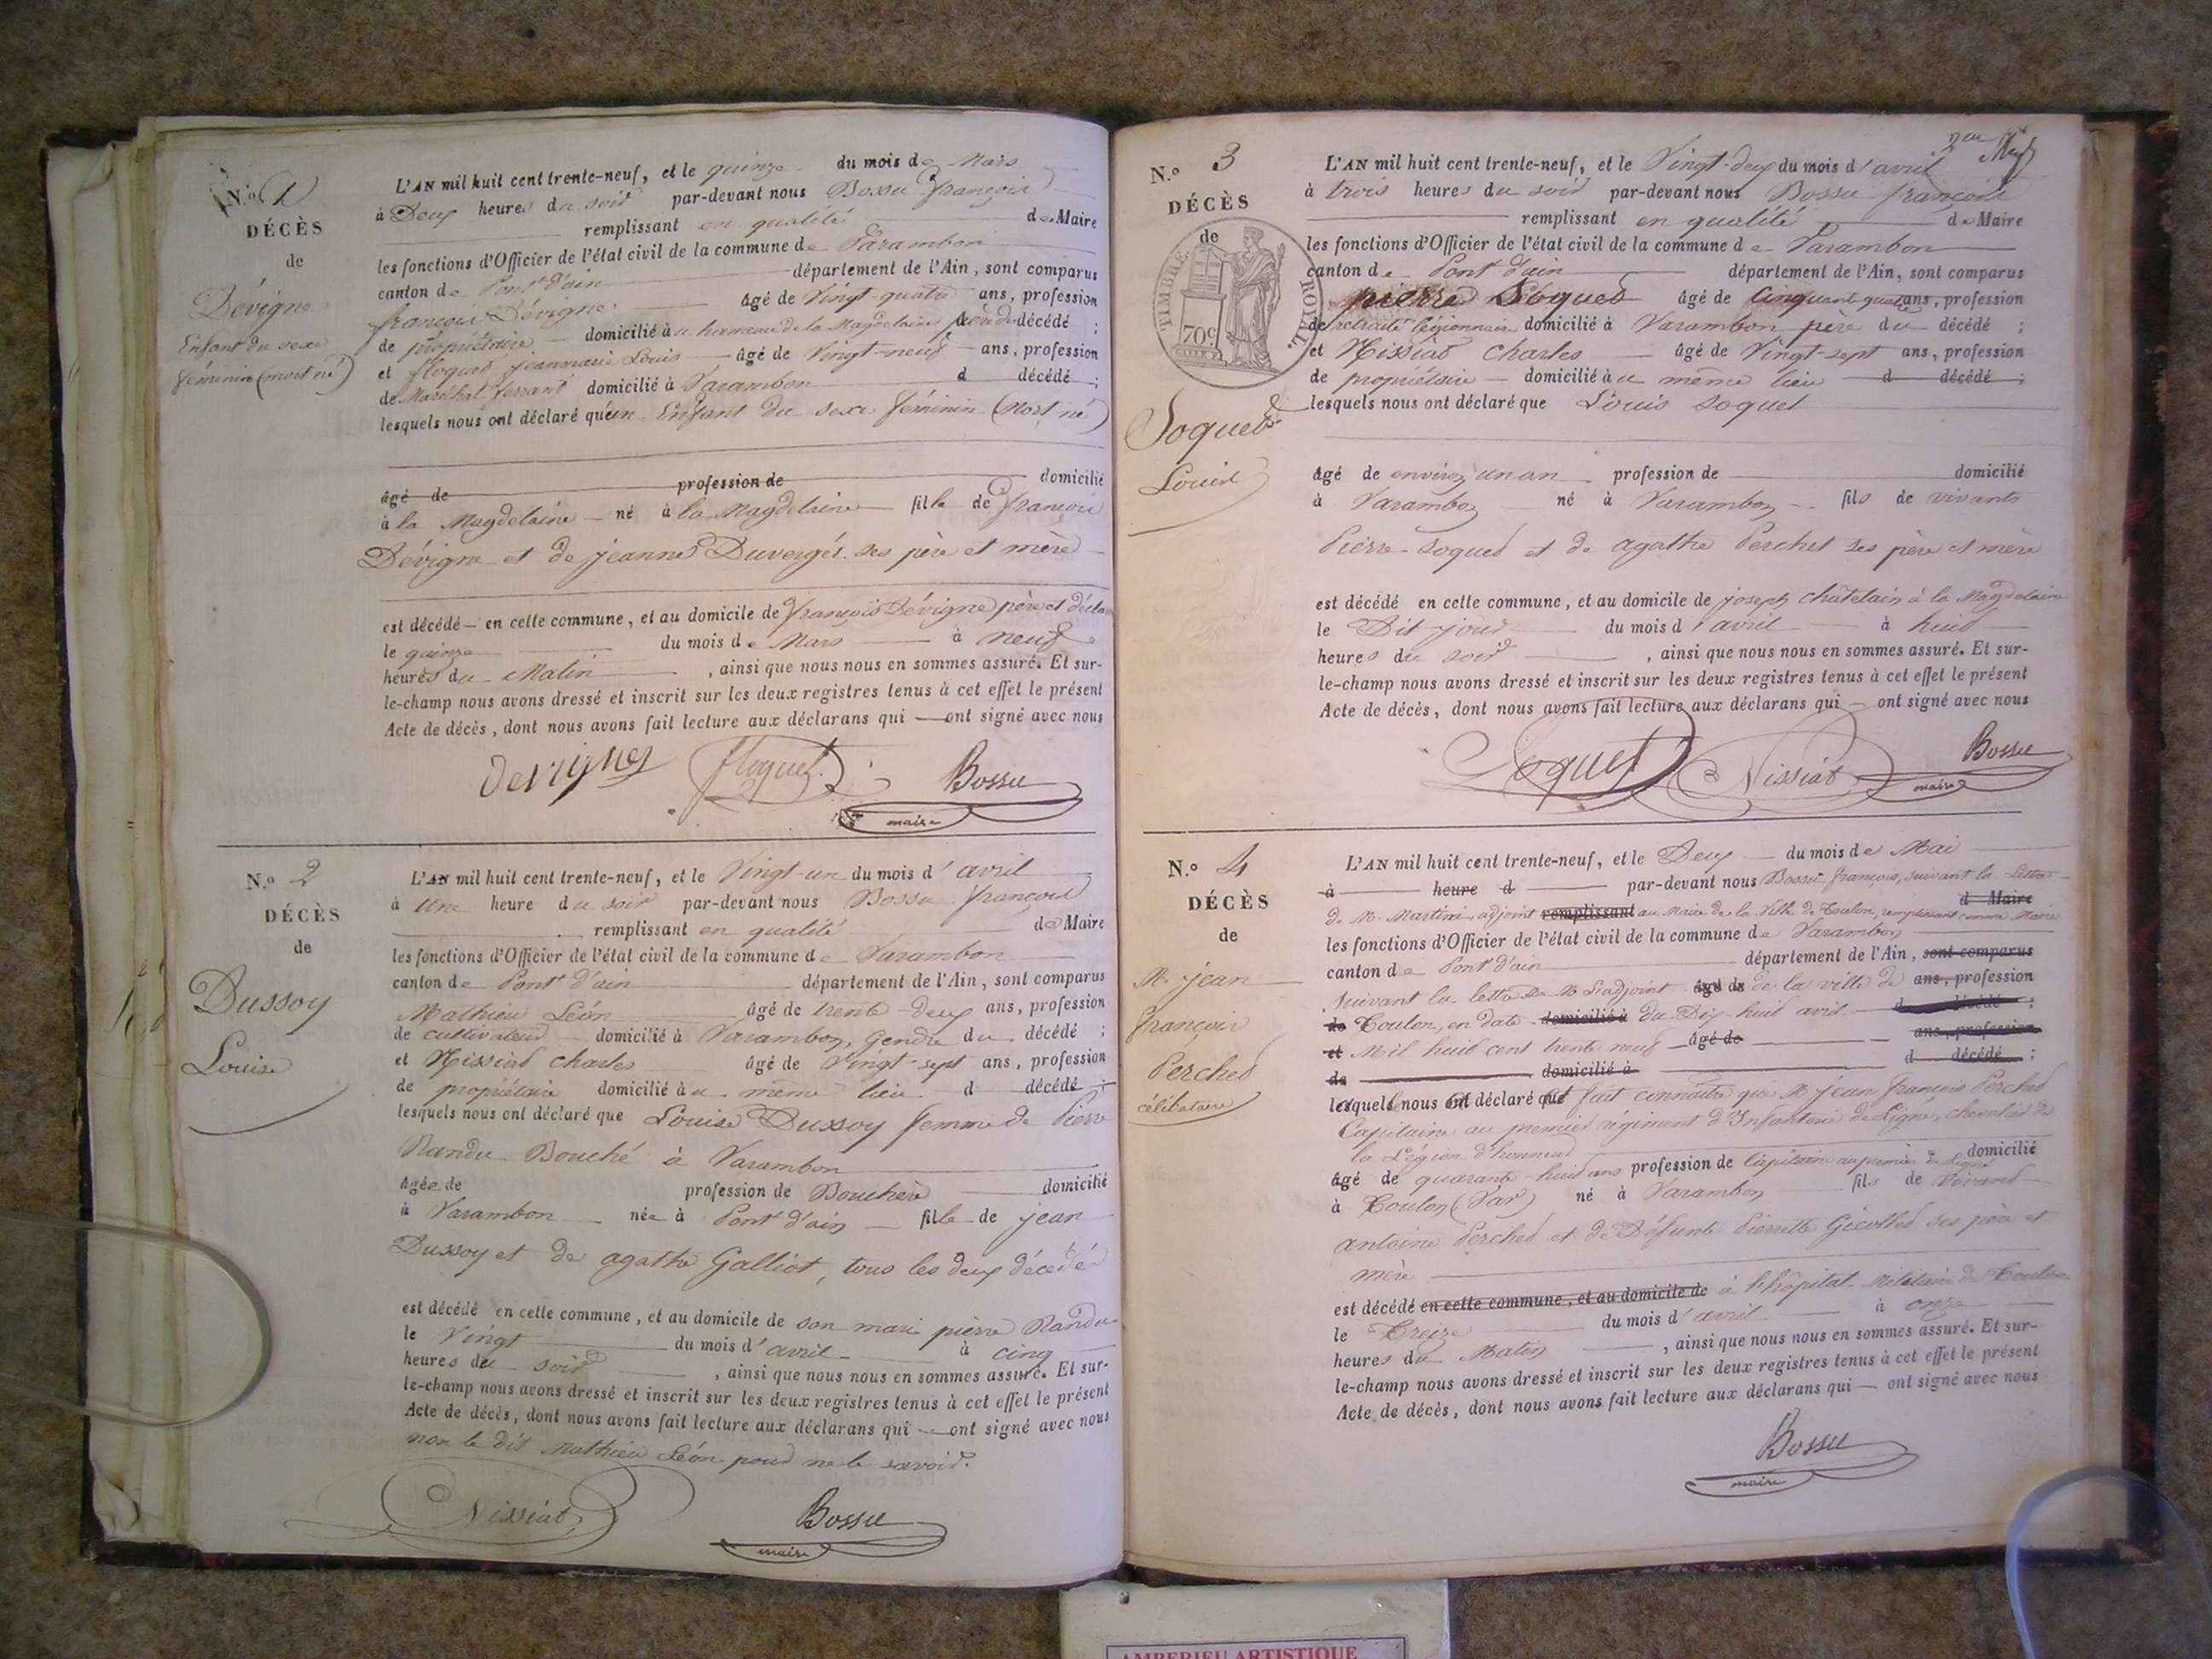 N.º 1
DÉCÈS
de
Dévigne
Enfant du sexe
féminin (mort né)
L'AN mil huit cent trente-neuf, et le quinze du mois de Mars
à Deux heures du soir par-devant nous Bossu françois
remplissant en qualité de Maire
les fonctions d'Officier de l'état civil de la commune de Varambon
canton de Pont d'ain département de l'Ain, sont comparus
françois Dévigne âgé de Vingt-quatre ans, profession
de propriétaire domicilié àu hameau de la Magdelaine père du décédé ;
et floquet jeanmarie Louis âgé de Vingt-neuf ans, profession
de Maréchal ferrant domicilié à Varambon d décédé ;
lesquels nous ont déclaré qu'un Enfant du sexe féminin (Mort né)
âgé de profession de domicilié
à la Magdelaine né à la Magdelaine fille de françois
Dévigne et de jeanne Duvergér ses père et mère
est décédé en cette commune, et au domicile de françois Dévigne père et décla
le quinze du mois de Mars à neuf
heures du Matin, ainsi que nous nous en sommes assuré. Et sur-
le-champ nous avons dressé et inscrit sur les deux registres tenus à cet effet le présent
Acte de décès, dont nous avons fait lecture aux déclarans qui ont signé avec nous
devignes floquet Bossu
maire
N.º 2
DÉCÈS
de
Dussoy
Louise
L'AN mil huit cent trente-neuf, et le Vingt-un du mois d'avril
à Une heure du soir par-devant nous Bossu françois
remplissant en qualité de Maire
les fonctions d'Officier de l'état civil de la commune de Varambon
canton de Pont d'ain département de l'Ain, sont comparus
Mathieu Léon âgé de trente-deux ans, profession
de cultivateur domicilié à Varambon, Gendre du décédé ;
et Nissiat Charles âgé de Vingt-sept ans, profession
de propriétaire domicilié àu même lieu d décédé ;
lesquels nous ont déclaré que Louise Dussoy femme de Pierre
Randu Bouché à Varambon
âgée de profession de Bouchère domicilié
à Varambon née à Pont d'ain fille de jean
Dussoy et de agathe Galliot, tous les deux décédés
est décédé en cette commune, et au domicile de son mari pierre Randu
le Vingt du mois d'avril à cinq
heures du soir, ainsi que nous nous en sommes assuré. Et sur-
le-champ nous avons dressé et inscrit sur les deux registres tenus à cet effet le présent
Acte de décès, dont nous avons fait lecture aux déclarans qui ont signé avec nous
non le dit Mathieu Léon pour ne le savoir.
Nissiat Bossu
maire
N.º 3
DÉCÈS
de
TIMBRE ROYAL.
70c
Soquet
Louis
L'AN mil huit cent trente-neuf, et le Vingt-deux du mois d'avril
à trois heures du soir par-devant nous Bossu françois
remplissant en qualité de Maire
les fonctions d'Officier de l'état civil de la commune de Varambon
canton de Pont d'ain département de l'Ain, sont comparus
pierre Soquet âgé de Cinquant quatre ans, profession
de retraité légionnaire domicilié à Varambon père du décédé ;
et Nissiat Charles âgé de Vingt-sept ans, profession
de propriétaire domicilié àu même lieu d décédé ;
lesquels nous ont déclaré que Louis Soquet
âgé de environ un an profession de domicilié
à Varambon né à Varambon fils de vivants
Pierre Soquet et de agathe Perchet ses père et mère
est décédé en cette commune, et au domicile de joseph Châtelain à la Magdelaine
le Dit jour du mois d'avril à huit
heures du soir, ainsi que nous nous en sommes assuré. Et sur-
le-champ nous avons dressé et inscrit sur les deux registres tenus à cet effet le présent
Acte de décès, dont nous avons fait lecture aux déclarans qui ont signé avec nous
Soquet Nissiat Bossu
maire
N.º 4
DÉCÈS
de
M. jean
françois
Perchet
célibataire
L'AN mil huit cent trente-neuf, et le Deux du mois de Mai
à heure d par-devant nous Bossu françois, suivant la Lettre
d Maire
de M. Martini adjoint remplissant au Maire de la Ville de Toulon, remplissant comme Maire
les fonctions d'Officier de l'état civil de la commune de Varambon
canton de Pont d'ain département de l'Ain, sont comparus
suivant la lettre de M. L'adjoint âgé de de la ville de ans, profession
de Toulon, en date domicilié à du Dix-huit avril d décédé ;
et Mil huit cent trente neuf âgé de ans, profession
de domicilié à d décédé ;
lesquels nous ont déclaré que fait connaître que M. jean françois Perchet
Capitaine au premier régiment d'Infanterie de Ligne, chevalier de
la Légion d'honneur
âgé de quarante-huit ans profession de Capitaine au premier de Ligne domicilié
à Toulon (Var) né à Varambon fils de Vivant
antoine Perchet et de Défunte Pierrette Gicollet ses père et
mère
est décédé en cette commune, et au domicile de à l'hôpital Militaire de Toulon
le Treize du mois d'avril à onze
heures du Matin, ainsi que nous nous en sommes assuré. Et sur-
le-champ nous avons dressé et inscrit sur les deux registres tenus à cet effet le présent
Acte de décès, dont nous avons fait lecture aux déclarans qui ont signé avec nous
Bossu
maire
AMBERIEU ARTISTIQUE